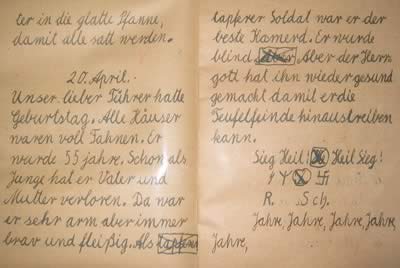 ter in die glatte Pfanne,
damit alle satt werden.
20. April.
Unser lieber Führer hatte
Geburtstag. Alle Häuser
waren voll Fahnen. Er
wurde 55 jahre. Schon als
Junge hat er Vater und
Mutter verloren. Da war
er sehr arm aber immer
brav und fleißig. Als
tapferer Soldat war er der
beste Kamerd. Er wurde
blind. Aber der Herr
gott hat ihn wieder gesund
gemacht damit er die
Teufelfeinde hinaustreiben
kann.
Sieg Heil! Heil Sieg!
卐
R. Sch.
Jahre, Jahre, Jahre, Jahre,
Jahre,